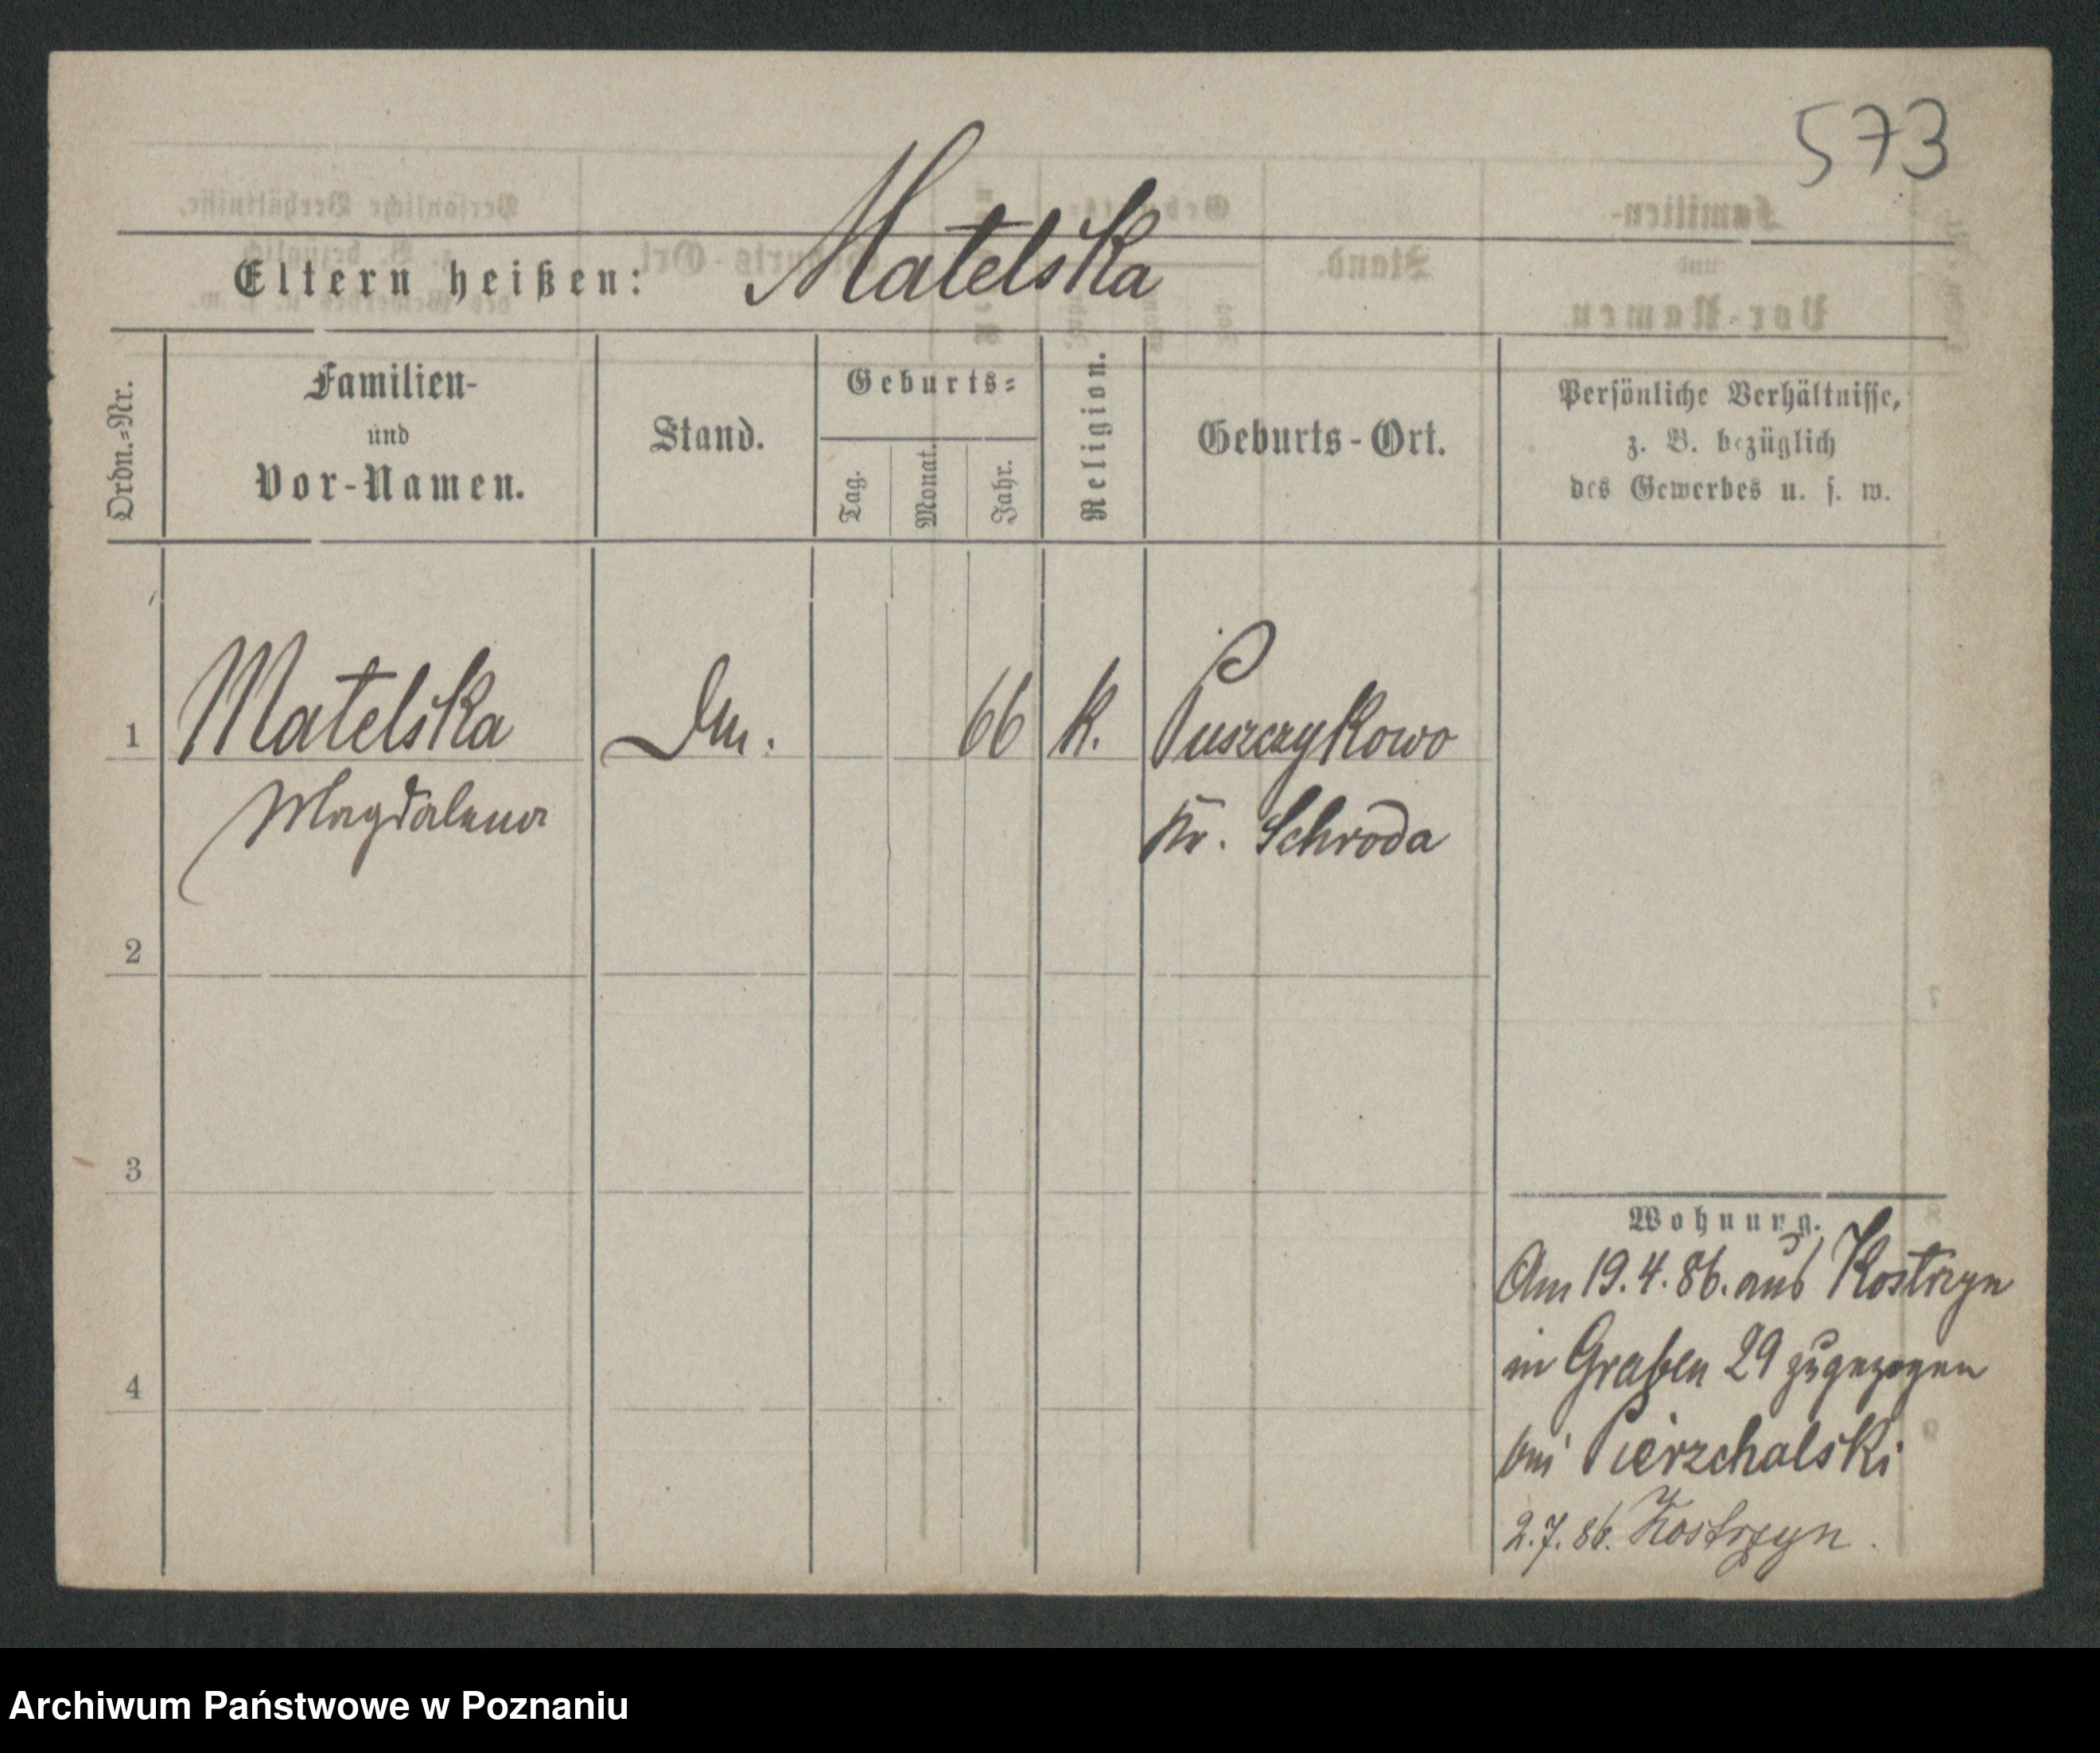 573
Matelska
Eltern heißen:
Ordn.=Nr.
Familien-
und
Vor-Namen.
Stand.
Geburts=
Tag.
Monat.
Jahr.
Religion.
Geburts-Ort.
Persönliche Verhältnisse,
z. B. bezüglich
des Gewerbes u. s. w.
1 Matelska 66 K. Puszczykowo
Magdalena Kr. Schroda
2
3
4
Wohnung.
Am 19.4.86. aus Kostrzyn
in Graben 29 zugezogen
bei Pierzchalski
2.7.86. Kostrzyn.
Archiwum Państwowe w Poznaniu